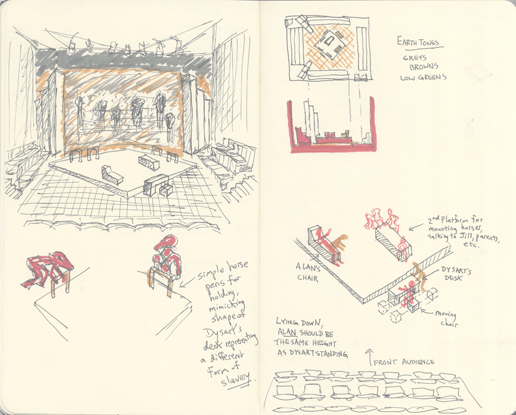 simple horse
pens for
holding,
mimicking
shape of
Dysart's
desk representing
a different
form of
slavery.
EARTH TONES
GREYS
BROWNS
LOW GREENS
2nd platform for
mounting horses,
talking to Jill, parents,
etc.
ALAN'S
CHAIR
DYSART'S
DESK
moving
chair
LYING DOWN,
ALAN SHOULD BE
THE SAME HEIGHT
AS DYSART STANDING
FRONT AUDIENCE